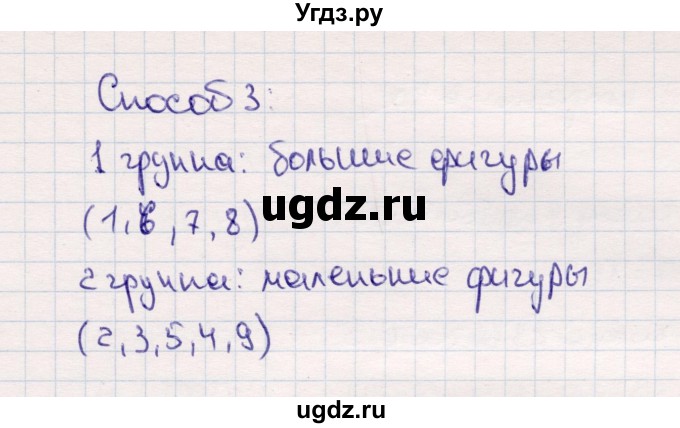 Угдз.ру
Способ 3:
1 группа: большие фигуры
ugdz.ru
(1, 6, 7, 8)
2 группа: маленькие фигуры
(2, 3, 5, 4, 9)
ugdz.ru